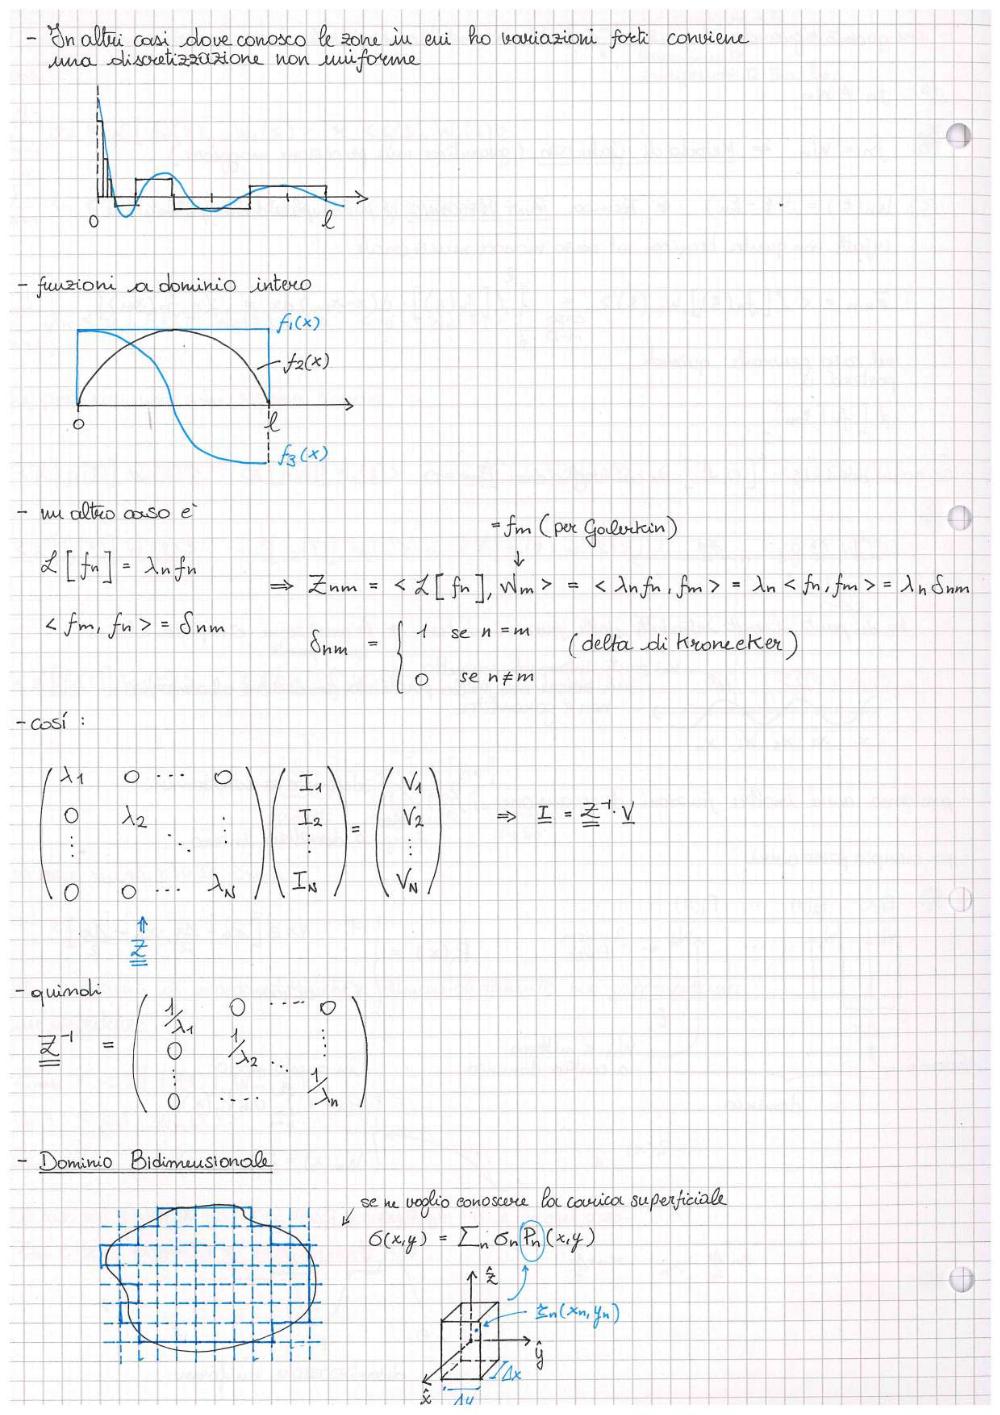 - In altri casi dove conosco le zone in cui ho variazioni forti conviene
una discretizzazione non uniforme
0
l
- funzioni a dominio intero
f1(x)
f2(x)
0
l
f3(x)
- un altro caso è
= fm (per Galerkin)
↓
ℒ[fn] = λn fn
⇒ Znm = < ℒ[fn], Wm > = < λn fn, fm > = λn < fn, fm > = λn δnm
< fm, fn > = δnm
δnm = { 1 se n = m
0 se n ≠ m
(delta di Kronecker)
- così :
( λ1 0 ... 0 ) ( I1 ) ( V1 )
( 0 λ2 ⋮ ) ( I2 ) = ( V2 ) ⇒ I = Z⁻¹ · V
( ⋮ ⋱ ⋮ ) ( ⋮ ) ( ⋮ )
( 0 0 ... λN ) ( IN ) ( VN )
⇑
Z
- quindi
Z⁻¹ = ( 1/λ1 0 .... 0 )
( 0 1/λ2 ⋱ ⋮ )
( ⋮ 1/λn )
( 0 ..... )
- Dominio Bidimensionale
se ne voglio conoscere la carica superficiale
σ(x,y) = Σn σn Pn (x,y)
ẑ
ξn(xn, yn)
ŷ
Δx
x̂
Δy